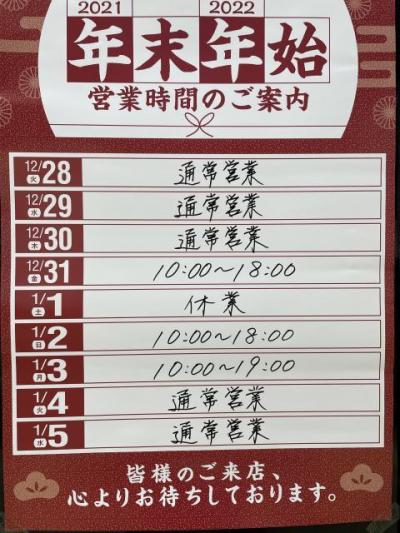 2021 2022
年末年始
営業時間のご案内
12/28 火 通常営業
12/29 水 通常営業
12/30 木 通常営業
12/31 金 10:00～18:00
1/1 土 休業
1/2 日 10:00～18:00
1/3 月 10:00～19:00
1/4 火 通常営業
1/5 水 通常営業
皆様のご来店、
心よりお待ちしております。